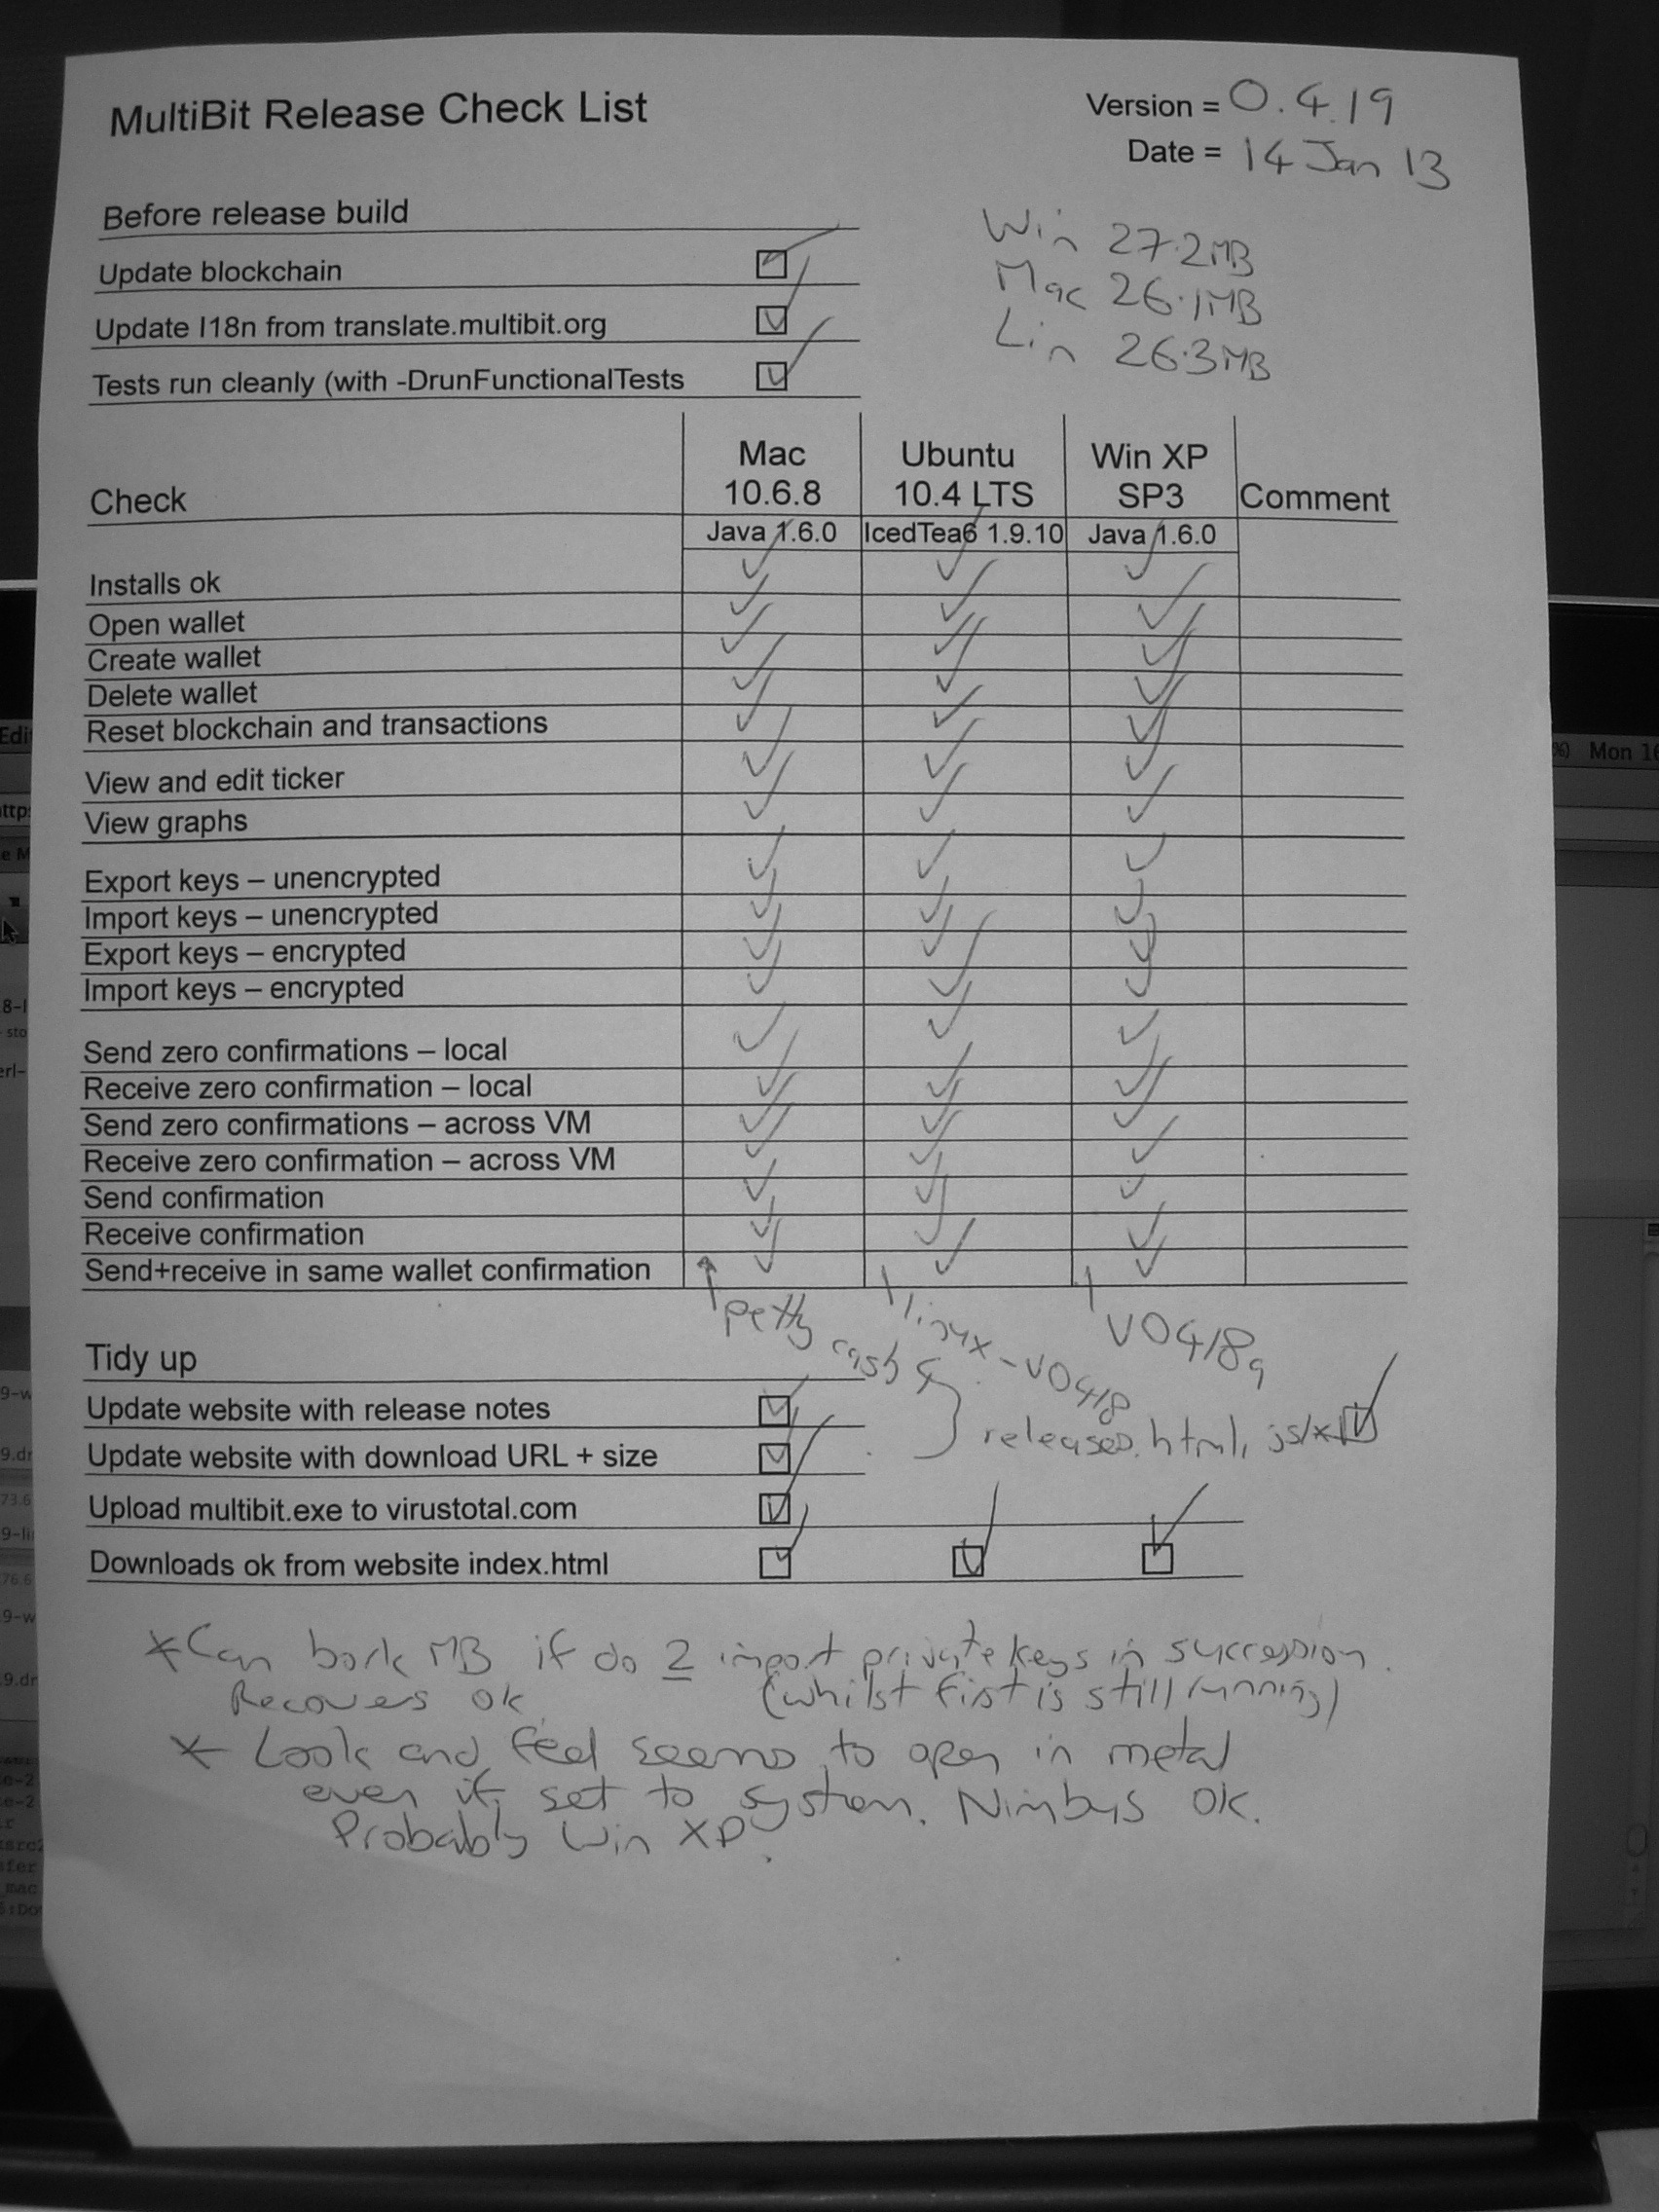 MultiBit Release Check List
Version = 0.4.19
Date = 14 Jan 13
Before release build
Update blockchain
Update I18n from translate.multibit.org
Tests run cleanly (with -DrunFunctionalTests
Win 27.2MB
Mac 26.1MB
Lin 26.3MB
Check
Mac
10.6.8
Ubuntu
10.4 LTS
Win XP
SP3
Comment
Java 1.6.0
IcedTea6 1.9.10
Java 1.6.0
Installs ok
Open wallet
Create wallet
Delete wallet
Reset blockchain and transactions
View and edit ticker
View graphs
Export keys – unencrypted
Import keys – unencrypted
Export keys – encrypted
Import keys – encrypted
Send zero confirmations – local
Receive zero confirmation – local
Send zero confirmations – across VM
Receive zero confirmation – across VM
Send confirmation
Receive confirmation
Send+receive in same wallet confirmation
petty cash 4
linux-v0418
v0418a
Tidy up
Update website with release notes
Update website with download URL + size
releases.html,
Upload multibit.exe to virustotal.com
Downloads ok from website index.html
*Can bork MB if do 2 import private keys in succession.
Recovers ok (whilst first is still running)
* Look and feel seems to open in metal
even if set to system. Nimbus ok.
Probably Win XP.
Mon 16